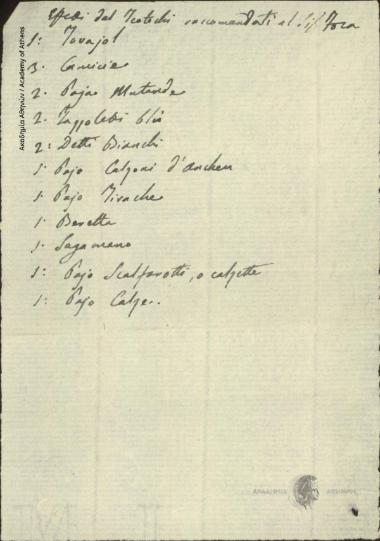 Effetti del Teotochi raccomandati al Sig.r Foca
1: Tovajol
3. Camicie
2. Paja Mutande
2. Fazzoletti blù
2: Detti Bianchi
1. Pajo Calzoni d'
1. Pajo Tirache
1. Beretta
1. Sugamano
1: Pajo Scalfarotti, o calzette
1: Pajo Calze..
Ακαδημία Αθηνών / Academy of Athens
ΑΚΑΔΗΜΙΑ ΑΘΗΝΩΝ